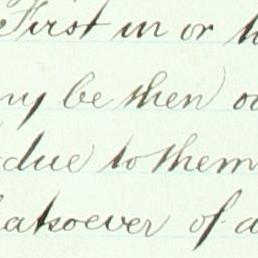 First in or
ny be then
due to them
atsoever of